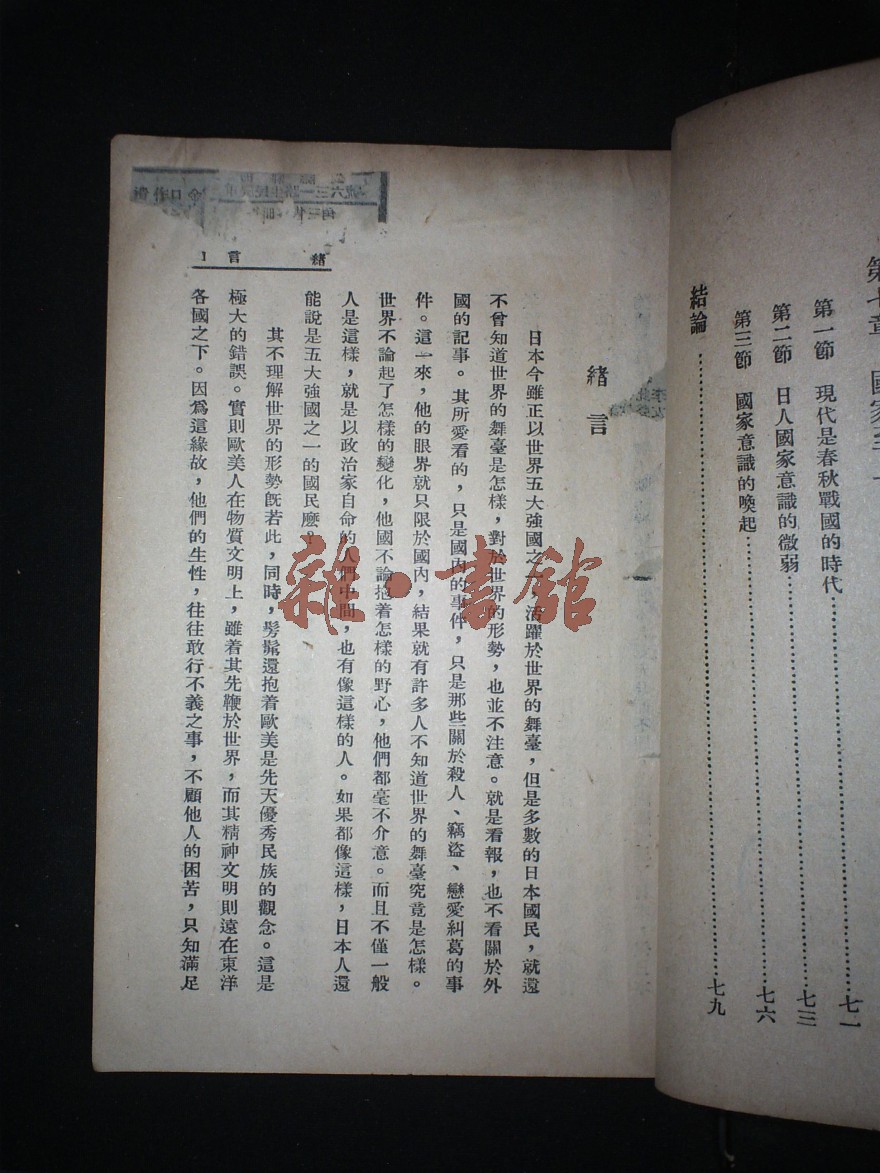 第七章
第一節　現代是春秋戰國的時代……………七一
第二節　日人國家意識的微弱……………七三
第三節　國家意識的喚起……………七六
結論……………七九
緒言　1
緒言
日本今雖正以世界五大強國之一，活躍於世界的舞臺，但是多數的日本國民，就還
不曾知道世界的舞臺是怎樣，對於世界的形勢，也並不注意。就是看報，也不看關於外
國的記事。其所愛看的，只是國內的事件，只是那些關於殺人、竊盜、戀愛糾葛的事
件。這一來，他的眼界就只限於國內，結果就有許多人不知道世界的舞臺究竟是怎樣。
世界不論起了怎樣的變化，他國不論抱着怎樣的野心，他們都毫不介意。而且不僅一般
人是這樣，就是以政治家自命的人們中間，也有像這樣的人。如果都像這樣，日本人還
能說是五大強國之一的國民麽？
其不理解世界的形勢旣若此，同時，髣髴還抱着歐美是先天優秀民族的觀念。這是
極大的錯誤。實則歐美人在物質文明上，雖着其先鞭於世界，而其精神文明則遠在東洋
各國之下。因爲這緣故，他們的生性，往往敢行不義之事，不顧他人的困苦，只知滿足
雜·書館